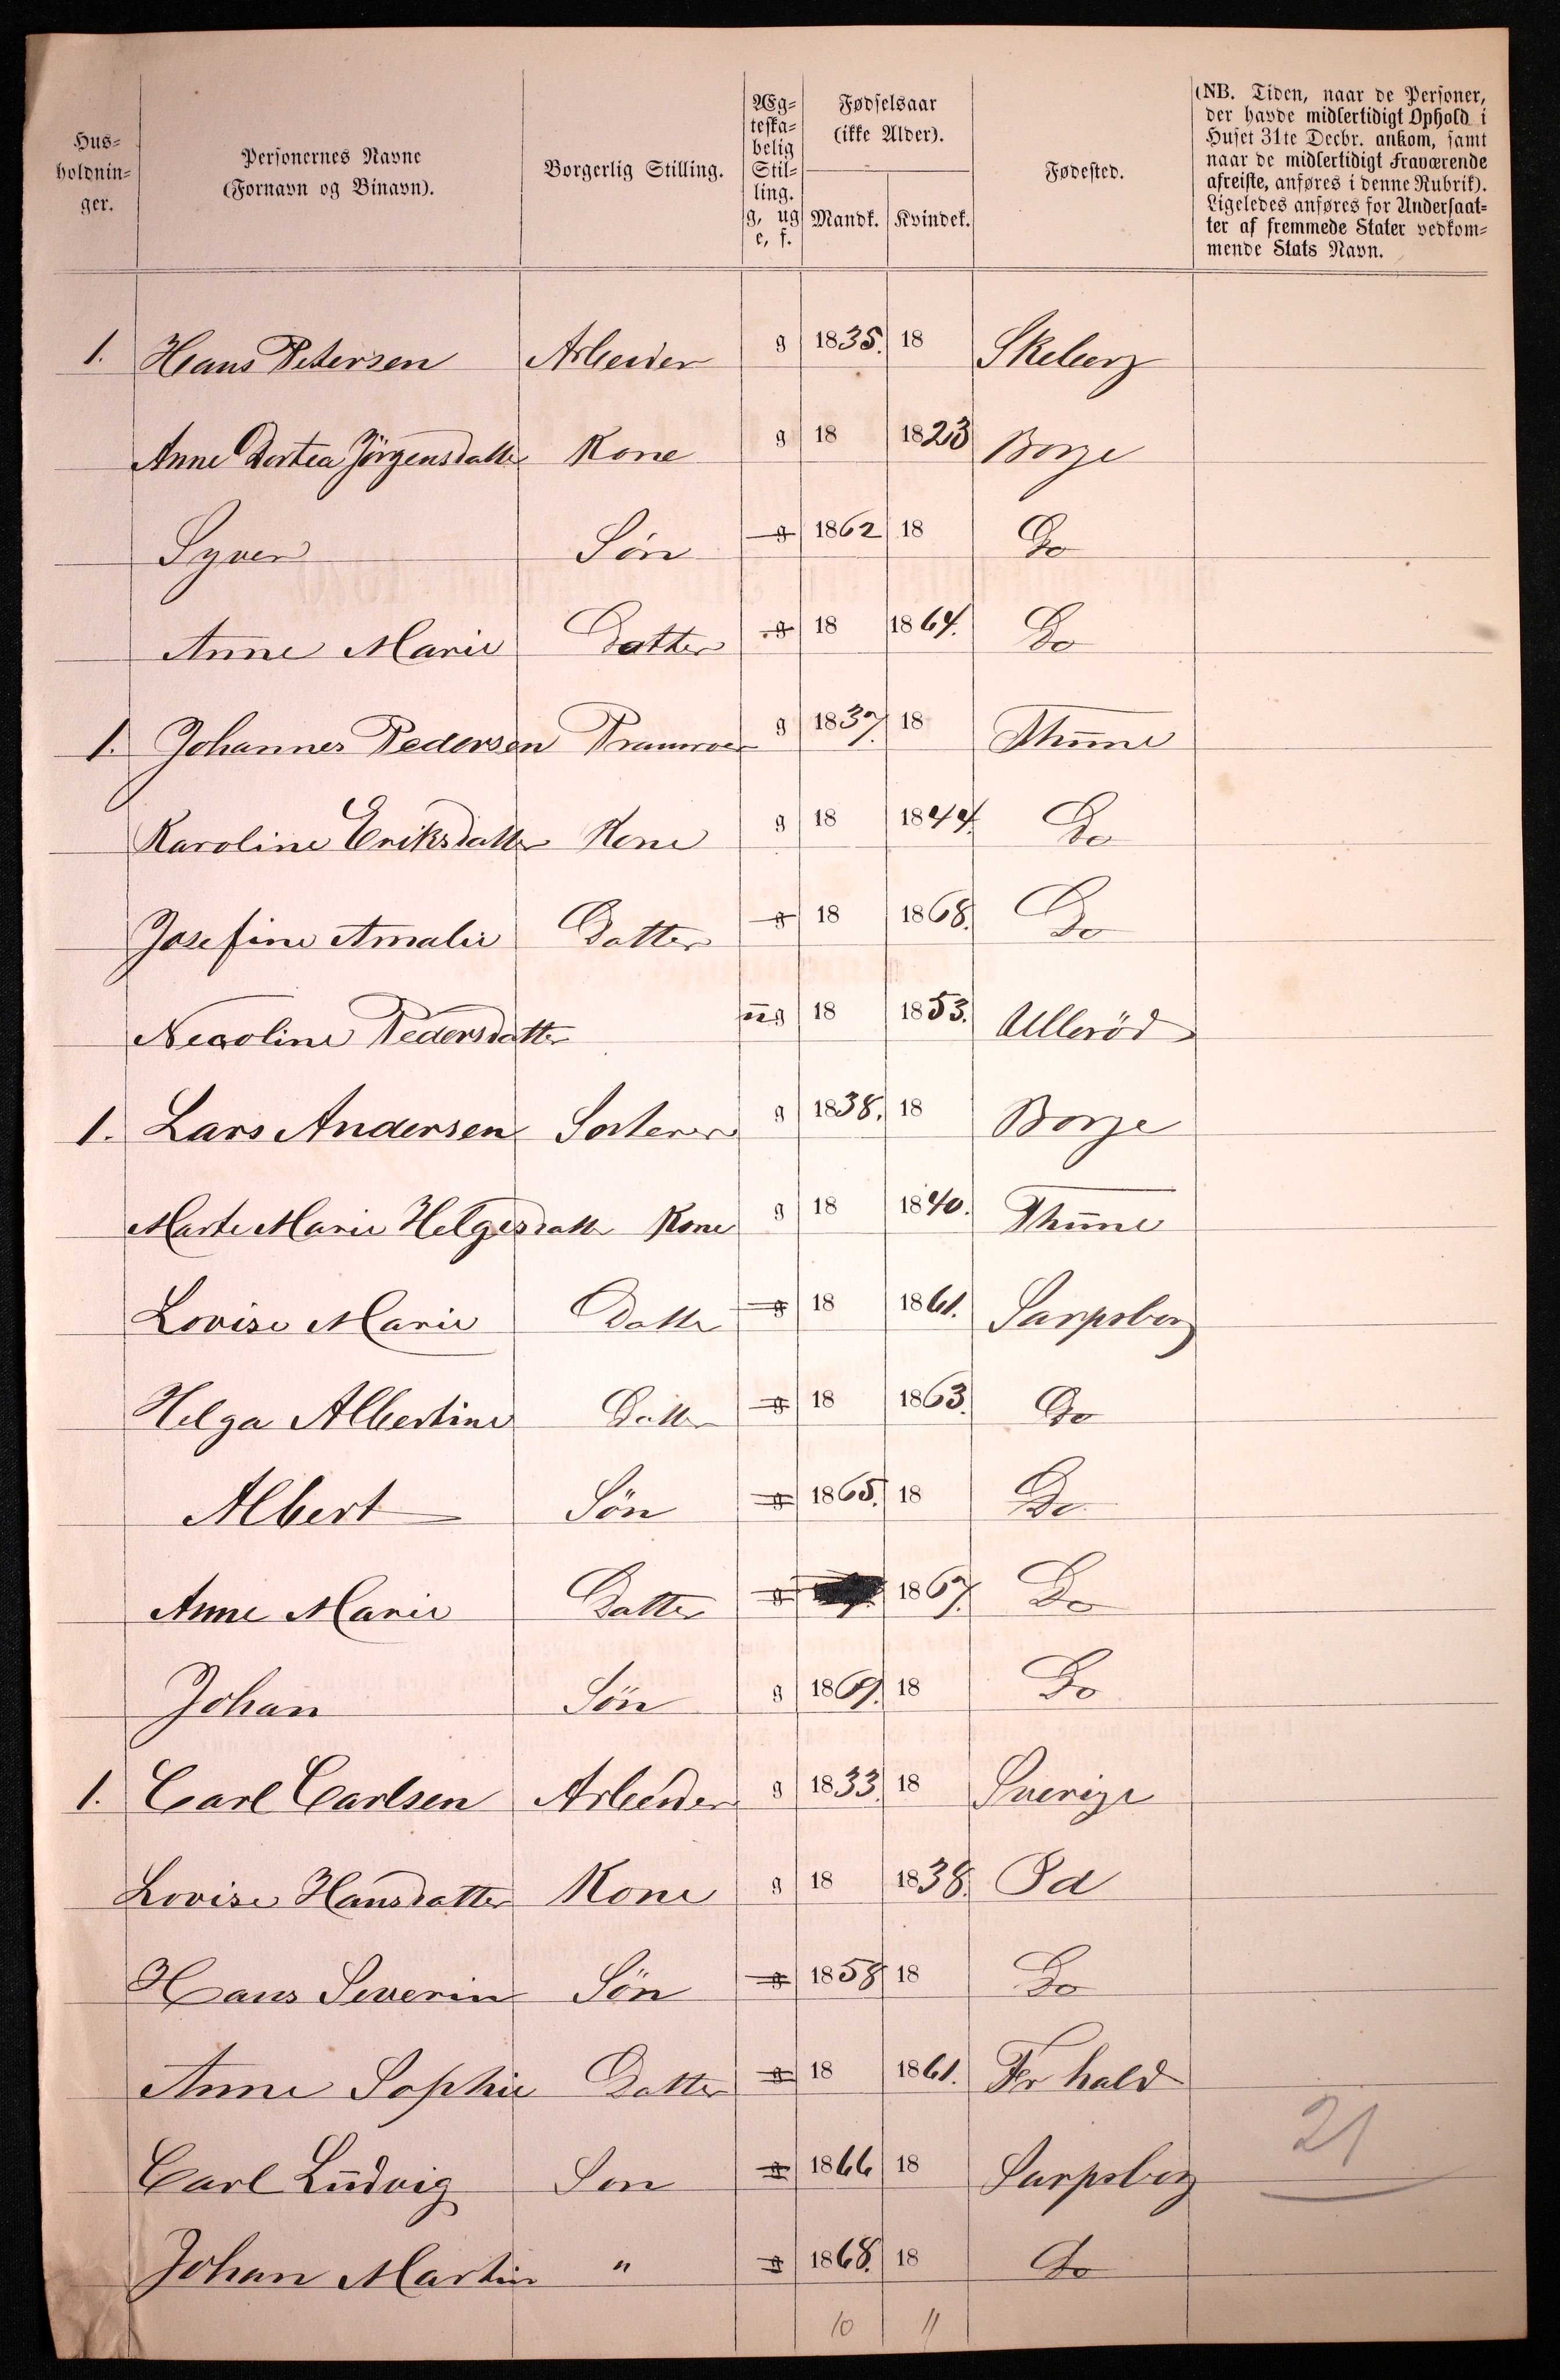 Hus-
holdnin-
ger.
Personernes Navne
(Fornavn og Binavn).
Borgerlig Stilling.
Æg-
teska-
belig
Stil-
ling.
g, ug
e, f.
Fødselsaar
(ikke Alder).
Mandk. Kvindek.
Fødested.
(NB. Tiden, naar de Personer,
der havde midlertidigt Ophold i
Huset 31te Decbr. ankom, samt
naar de midlertidigt Fraværende
afreiste, anføres i denne Rubrik).
Ligeledes anføres for Undersaat-
ter af fremmede Stater vedkom-
mende Stats Navn.
1. Hans Petersen Arbeider g 1835. 18 Skeberg
Anne Dortea Jörgensdatter Kone g 18 1823 Borge
Syver Sön g 1862 18 Do
Anne Marie Datter g 18 1864. Do
1. Johannes Pedersen g 1837. 18 Thune
Karoline Eriksdatter Kone g 18 1844. Do
Josefine Amalie Datter g 18 1868. Do
Nicoline Pedersdatter ug 18 1853. Ulleröd
1. Lars Andersen Sorterer g 1838. 18 Borge
Marte Marie Helgesdatter Kone g 18 1840. Thune
Lovise Marie Datter g 18 1861. Sarpsborg
Helga Albertine Datter g 18 1863. Do
Albert Sön g 1865. 18 Do
Anne Marie Datter g 1867. Do
Johan Sön g 1869. 18 Do
1. Carl Carlsen Arbeider g 1833. 18 Sverige
Lovise Hansdatter Kone g 18 1838. Id
Hans Severin Sön g 1858 18 Do
Anne Sophie Datter g 18 1861. Fr hald
Carl Ludvig Son g 1866 18 Sarpsborg
21
Johan Martin " g 1868. 18 Do
10 11